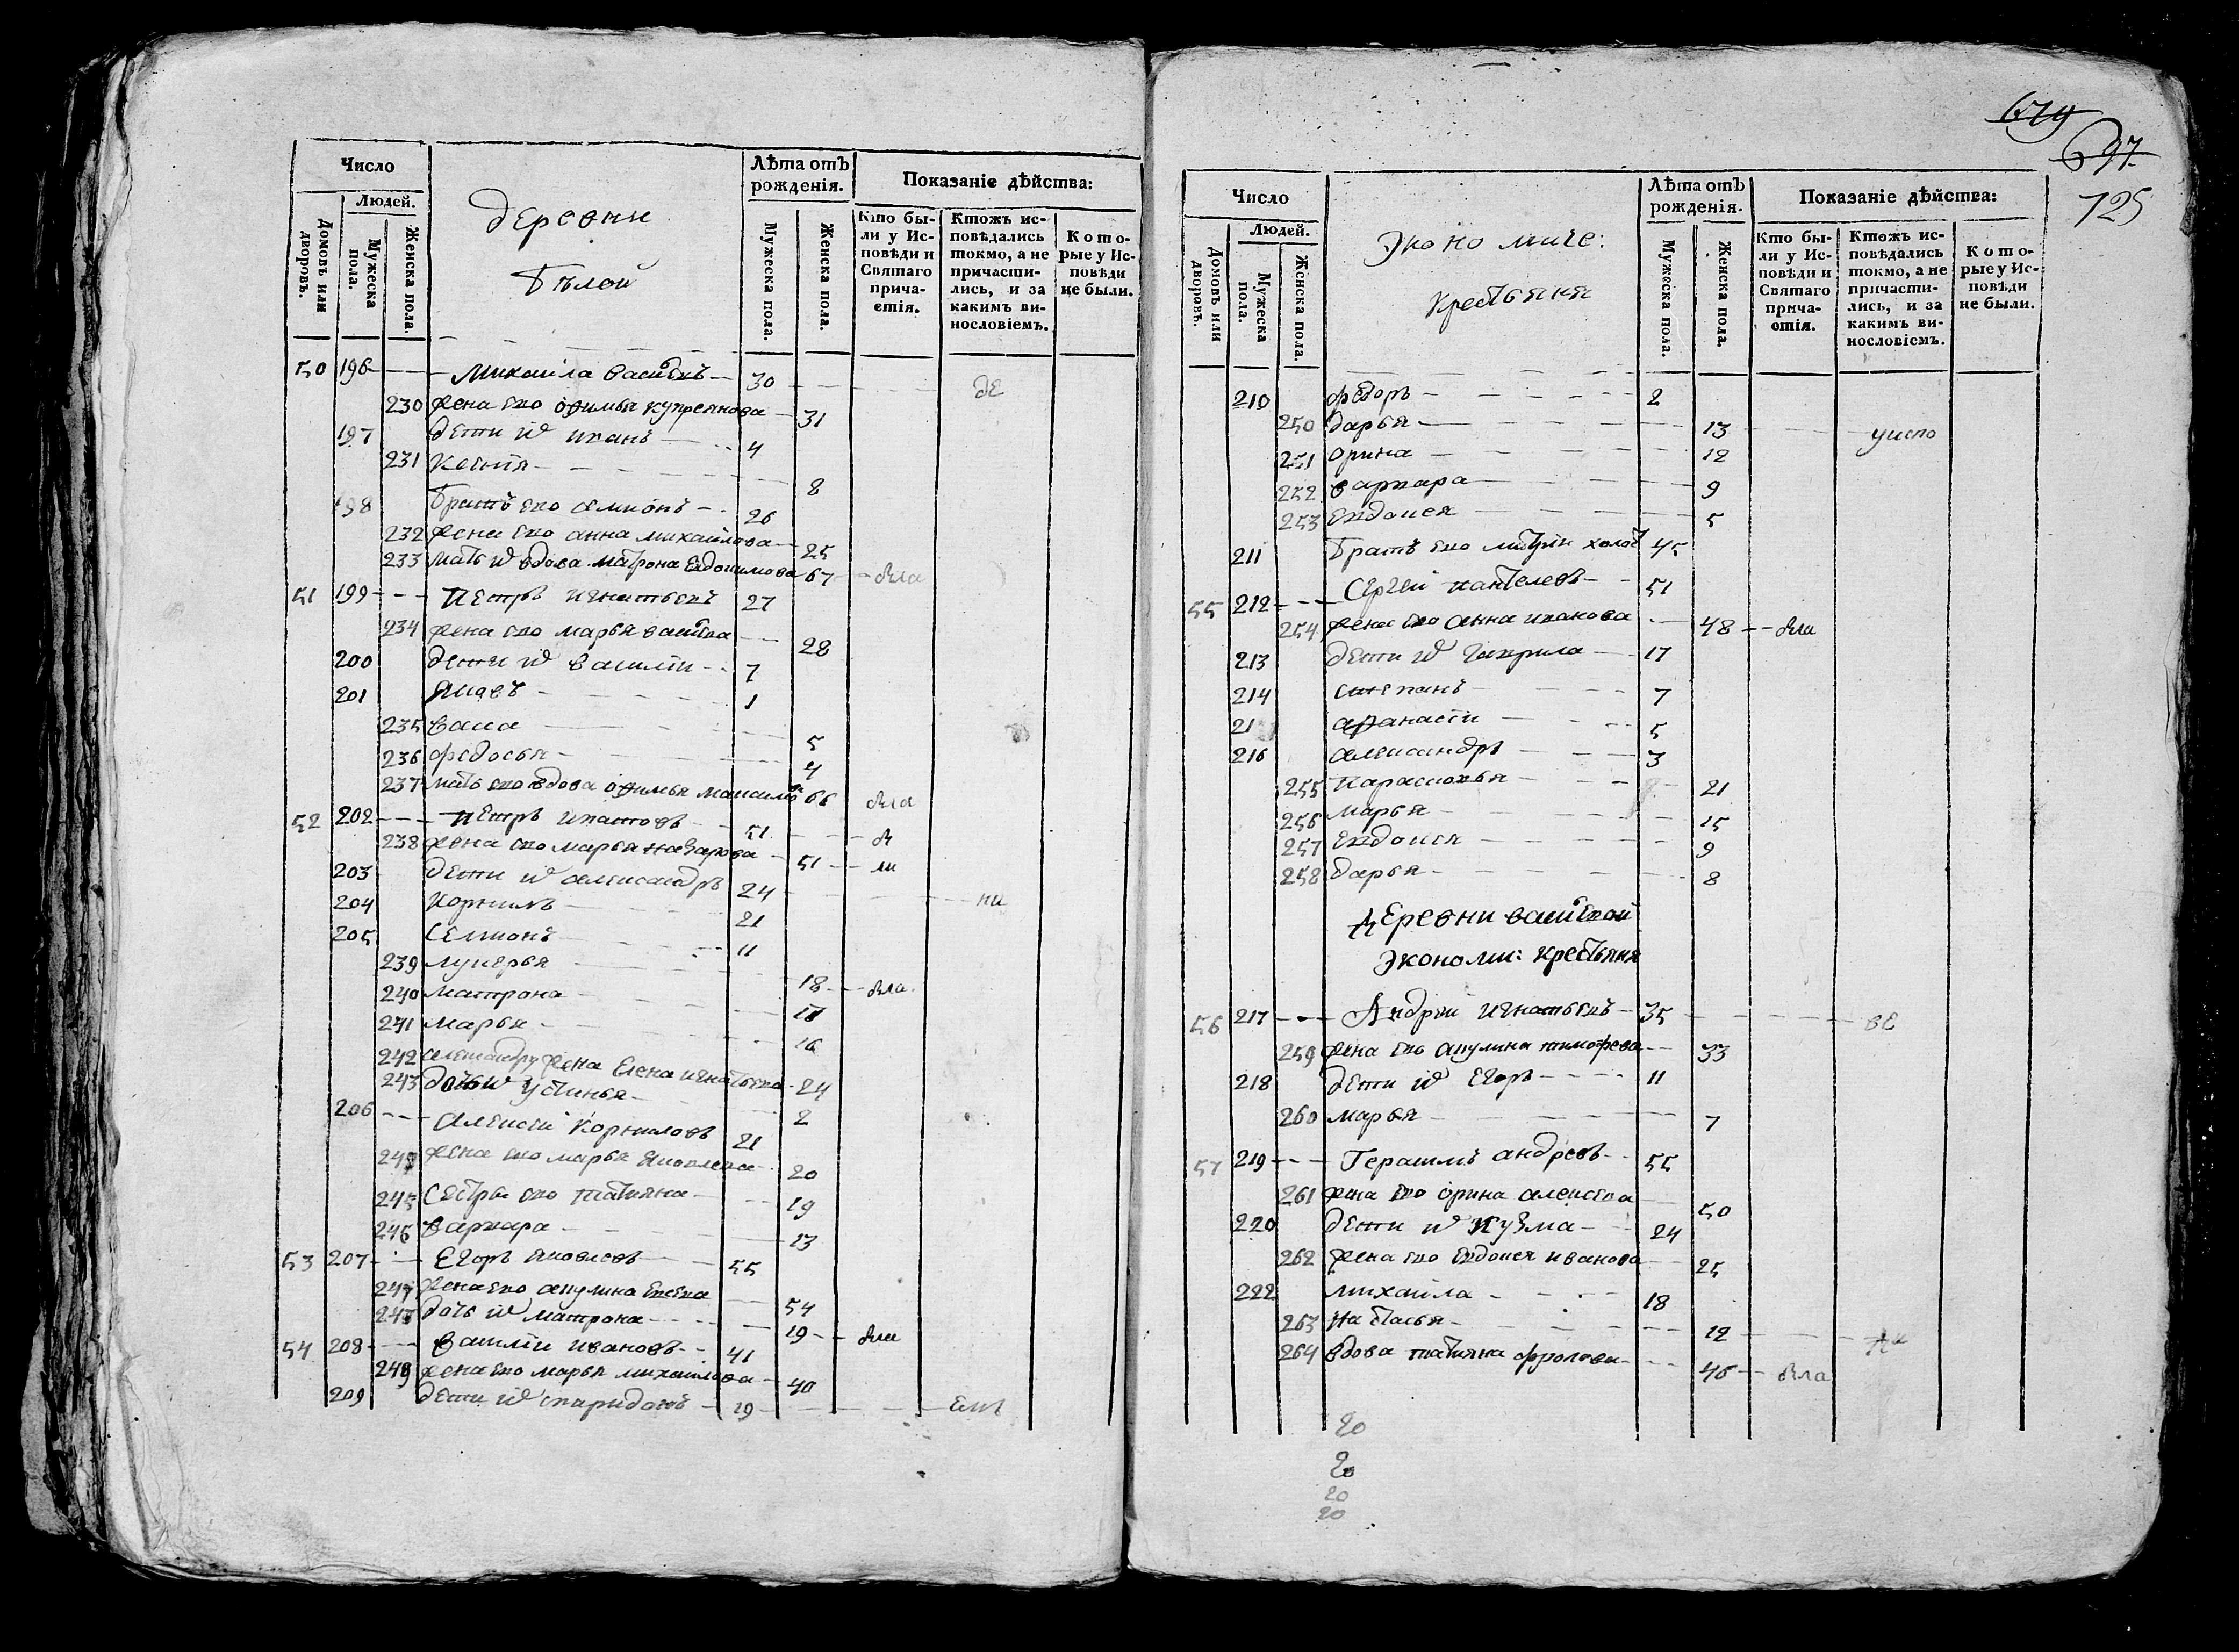 Число
Людей.
Домовъ или дворовъ.
Мужеска пола.
Женска пола.
деревни
Бѣлой
Лѣта отъ рожденія.
Мужеска пола.
Женска пола.
Показаніе дѣйства:
Кто были у Исповѣди и Святаго причастія.
Ктожъ исповѣдались токмо, а не причастились, и за какимъ винословіемъ.
Которые у Исповѣди не были.
50 196 Михаила 30
230 жена ево офимья купреянова 31
197 дети их иванъ 4
231 8
198 братъ ево семионъ 26
232 жена ево анна михаилова 25
233 мать их вдова матрона Евдокимова 67 была
51 199 Петръ игнатьевъ 27
234 жена ево марья 28
200 дети их василти 7
201 1
235 васа 5
236 федосья 4
237 мать ево вдова офимья 66 была
52 202 Петръ ипатовъ 51
238 жена ево марья назарова 51
203 дети их александръ 24
204 корнилъ 21
205 Семионъ 11
239 лукерья 18 была
240 матрона
241 марья 16
242 жена Елена игнатьева 24
243 дочь их устинья 2
206 алексей Корниловъ 21
жена ево марья яковлева 20
245 Сестры ево татияна 19
246 варвара 13
53 207 Егоръ яковлевъ 55
247 жена ево акулина 54
дочь их матрона 19 были
54 208 василии ивановъ 41
249 жена ево марья михаилова 40
209 дети их спиридонъ 19
679
697
725
Число
Людей.
Домовъ или дворовъ.
Мужеска пола.
Женска пола.
Экономиче:
крестьяня
Лѣта отъ рожденія.
Мужеска пола.
Женска пола.
Показаніе дѣйства:
Кто были у Исповѣди и Святаго причастія.
Ктожъ исповѣдались токмо, а не причастились, и за какимъ винословіемъ.
Которые у Исповѣди не были.
210 федоръ 2
250 дарья 13
251 орина 12
252 варвара 9
253 евдокея 5
211 братъ ево холос 45
55 212 Сергей пантелевъ 51
254 жена ево анна иванова 48 были
213 дети их гаврила 17
214 степанъ 7
афанасеи 5
216 александръ 3
255 парасковья 21
256 марья 15
257 евдокея 9
258 дарья 8
деревни
экономи: крестьяня
56 217 Андрей игнатьевъ 35
259 жена ево акулина тимофева 33
218 дети их егоръ 11
260 марья 7
57 219 Герасимъ андревъ 55
261 жена ево орина алексева 50
220 дети их кузма 24
262 жена ево евдокея иванова 25
222 михаила 18
263 настасья 12
264 вдова татияна фролова 46 была
20
20
20
20